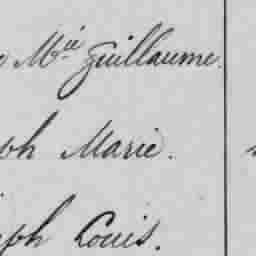 Mie Guillaume.
ph Marie.
ph Louis.